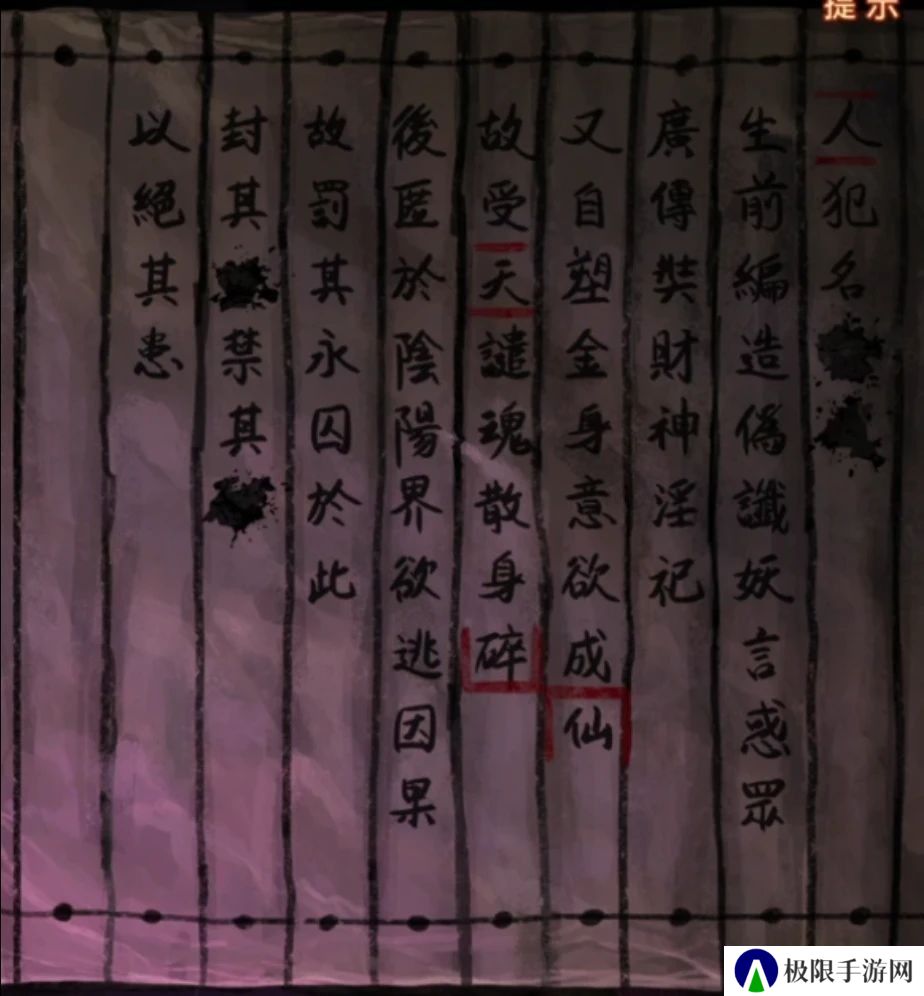 提示
人犯名
生前編造偽讖妖言惑眾
廣傳奘財神淫祀
又自塑金身意欲成仙
故受天譴魂散身碎
後匿於陰陽界欲逃因果
故罰其永囚於此
封其禁其
以絕其患
极限手游网